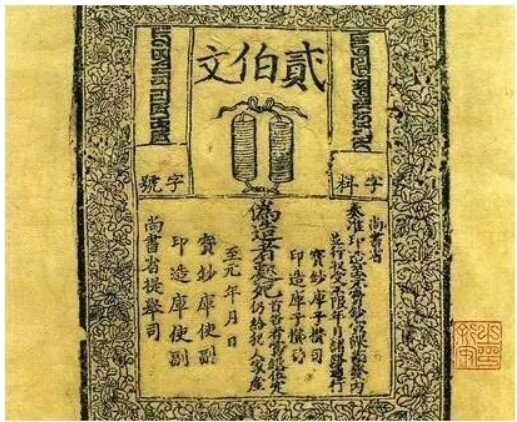 貳伯文
字料
字號
尚書省
奏准印造至元寶鈔宣課差役內
並行收受不限年月諸路通行
寶鈔庫子攢司
印造庫子攢司
偽造者處死
首告者賞銀伍定
仍給犯人家產
至元年月日
寶鈔庫使副
印造庫使副
尚書省提舉司